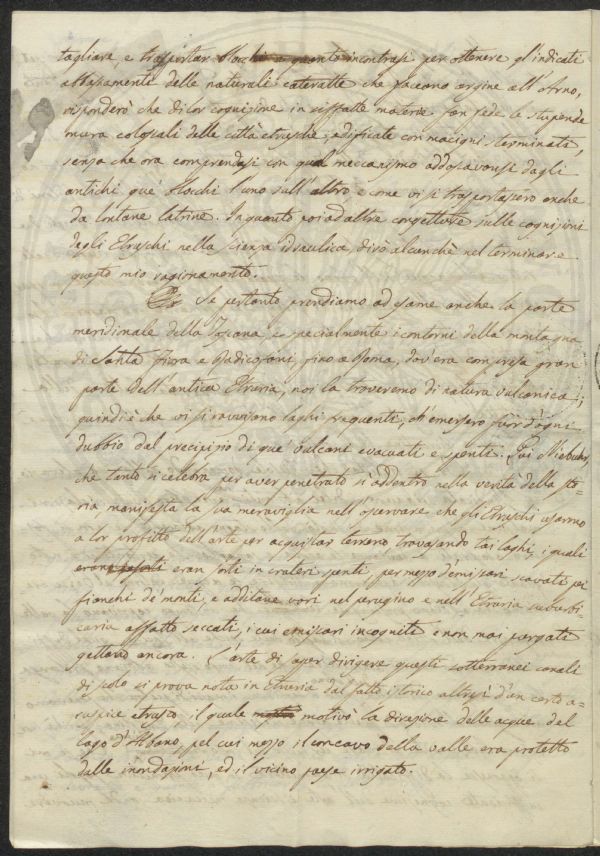 tagliare, e trasportar blocchi e quanto incontrasi per ottenere gl'indicati
abbassamenti delle naturali cateratte che facevano argine all'Arno,
risponderò che di lor cognizione in siffatte materie fan fede le stupende
mura colossali delle città etrusche edificate con macigni sterminati,
senza che ora comprendasi con qual meccanismo addossavansi dagli
antichi que' blocchi l'uno sull'altro, e come vi si trasportassero anche
da lontane latrine. In quanto poi ad altre congetture sulle cognizioni
degli Etruschi nella scienza idraulica, dirò alcunchè nel terminare
questo mio ragionamento.
Se pertanto prendiamo ad esame anche la parte
meridionale della Toscana, e specialmente i contorni della montagna
di Santa Fiora e Radicofani fino a Roma, dov'era compresa gran
parte dell'antica Etruria, noi la troveremo di natura vulcanica;
quindi è che vi si ravvisano laghi frequenti, ch'emersero fuor d'ogni
dubbio dal precipizio di que' vulcani evacuati e spenti. Qui Niebuhr,
che tanto si celebra per aver penetrato sì addentro nella verità della sto-
ria manifesta la sua meraviglia nell'osservare che gli Etruschi usarono
a lor profitto dell'arte per acquistar terreno, travasando tai laghi, i quali
eran sorti in crateri spenti, per mezzo d'emissari scavati pei
fianchi de' monti, e additane vari nel perugino e nell'Etruria suburbi-
caria affatto seccati, i cui emissari incogniti e non mai purgati
gettano ancora. L'arte di saper dirigere questi sotterranei canali
di scolo si prova nota in Etruria dal fatto istorico altresì d'un certo a-
ruspice etrusco il quale motivò la direzione delle acque del
lago d'Albano, pel cui mezzo il concavo della valle era protetto
dalle inondazioni, ed il vicino paese irrigato.